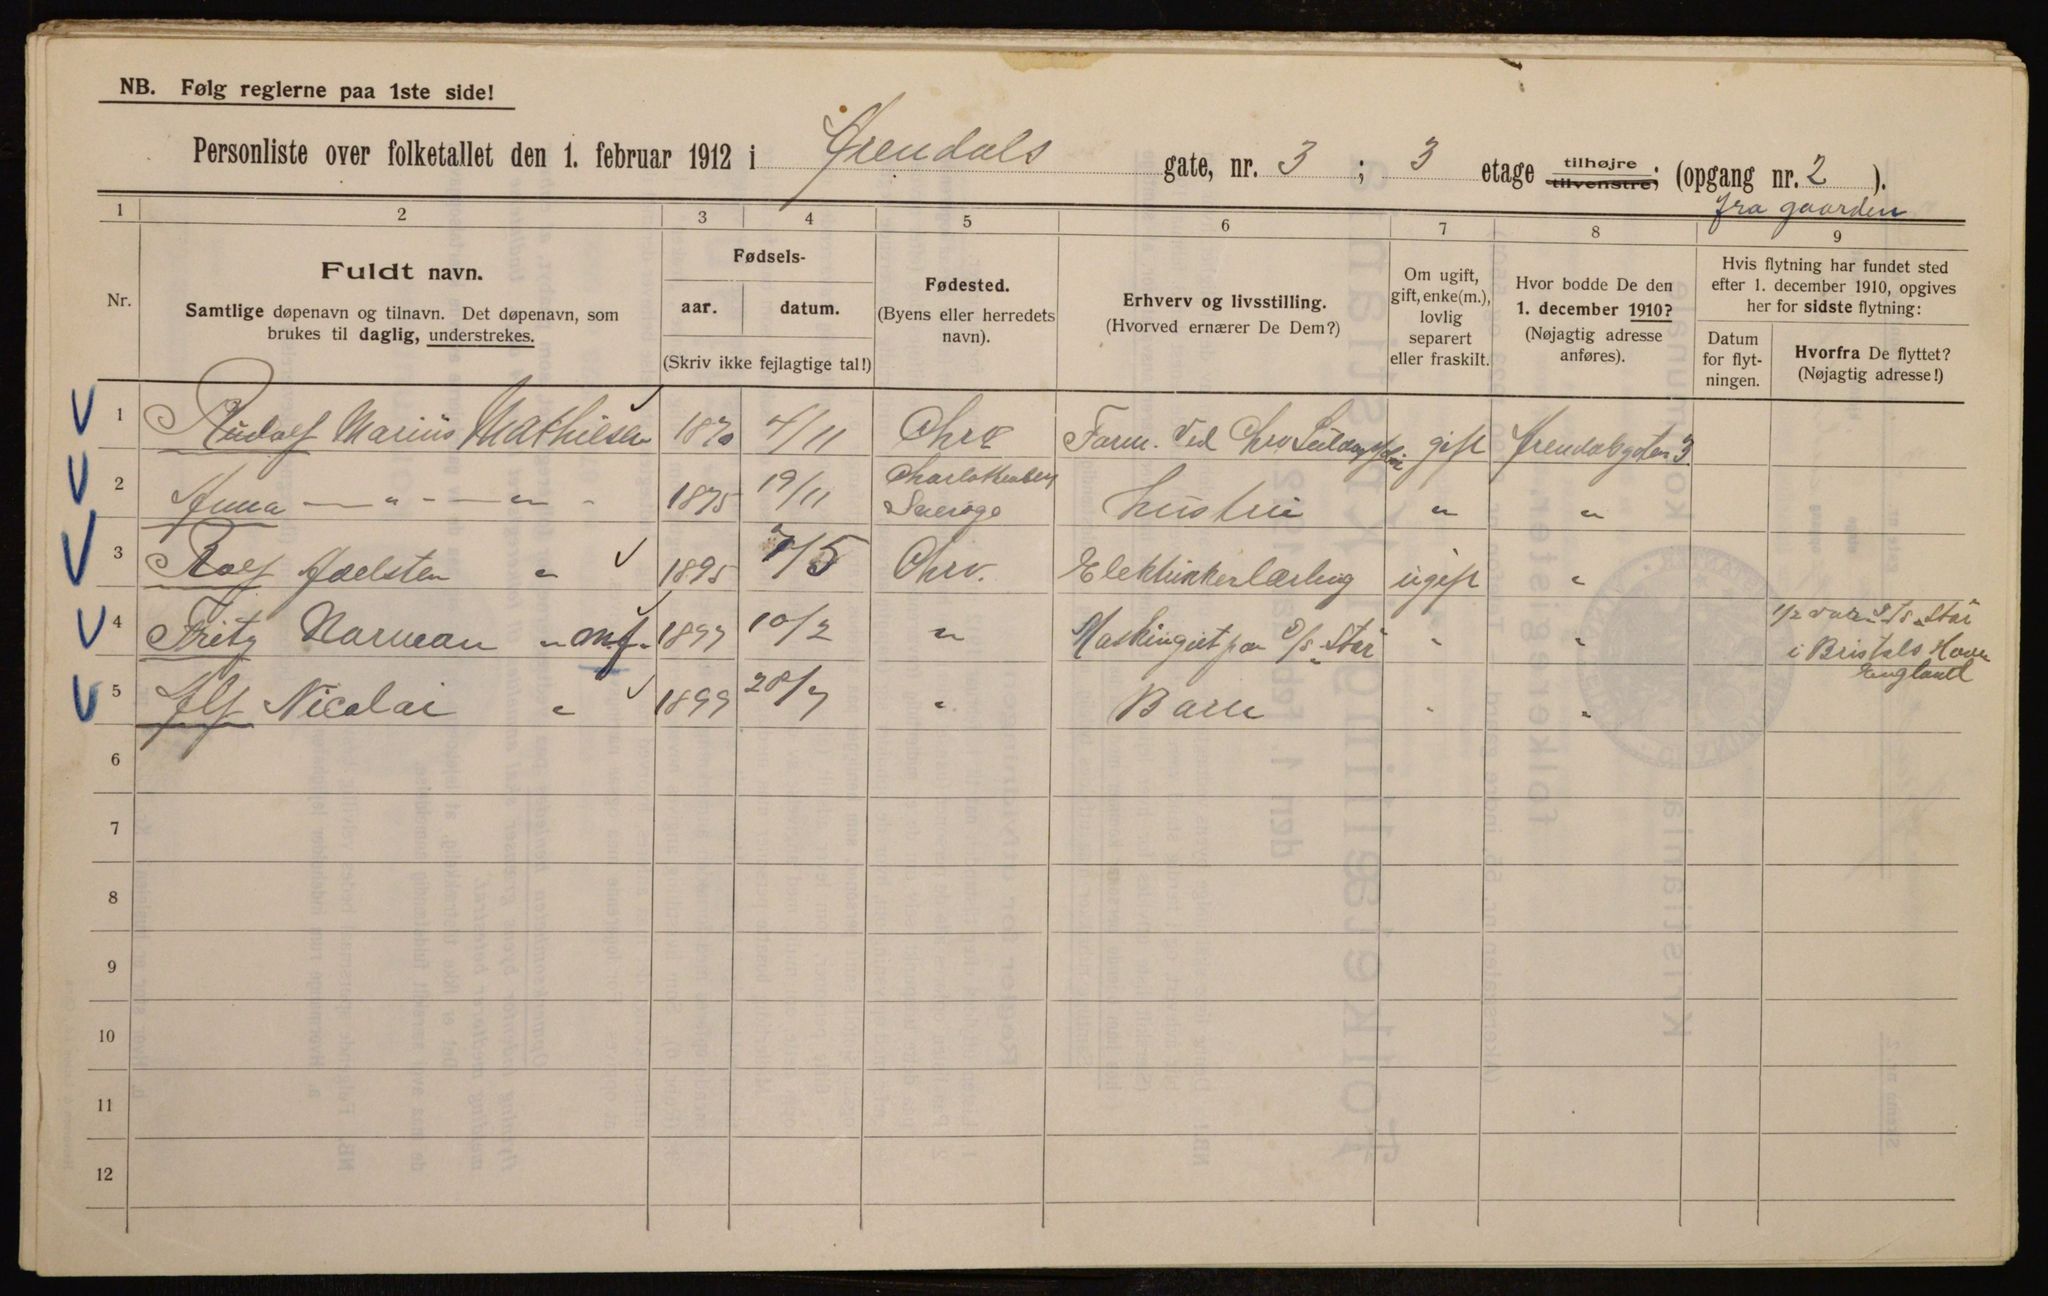 NB. Følg reglerne paa 1ste side!
Personliste over folketallet den 1. februar 1912 i Arendals gate, nr. 3 ; 3 etage tilhøjre tilvenstre; (opgang nr. 2 ).
fra gaarden
1 2 3 4 5 6 7 8 9
Nr.
Fuldt navn.
Samtlige døpenavn og tilnavn. Det døpenavn, som
brukes til daglig, understrekes.
Fødsels-
aar. datum.
(Skriv ikke fejlagtige tal!)
Fødested.
(Byens eller herredets
navn).
Erhverv og livsstilling.
(Hvorved ernærer De Dem?)
Om ugift,
gift, enke(m.),
lovlig
separert
eller fraskilt.
Hvor bodde De den
1. december 1910?
(Nøjagtig adresse
anføres).
Hvis flytning har fundet sted
efter 1. december 1910, opgives
her for sidste flytning:
Datum
for flyt-
ningen.
Hvorfra De flyttet?
(Nøjagtig adresse!)
1 Rudolf Marius Mathiesen 1870 4/11 Chra Form. Ved Chra gift Arendalsgaten 3
2 Anna — „ — — „ „ 1875 19/11 Charlottenberg Sverige Hustru „ „
3 Rolf Adelsten „ 1895 7/5 Chra. Elektrikerlærling ugift „
4 Fritz Norman „ m.f. 1897 10/2 „ Maskingut paa S/S „Stär „ „ 1/2 var S/S „Stär
i Bristols Havn
England
5 Alf Nicolai „ 1899 28/7 „ Barn „ „
6
7
8
9
10
11
12